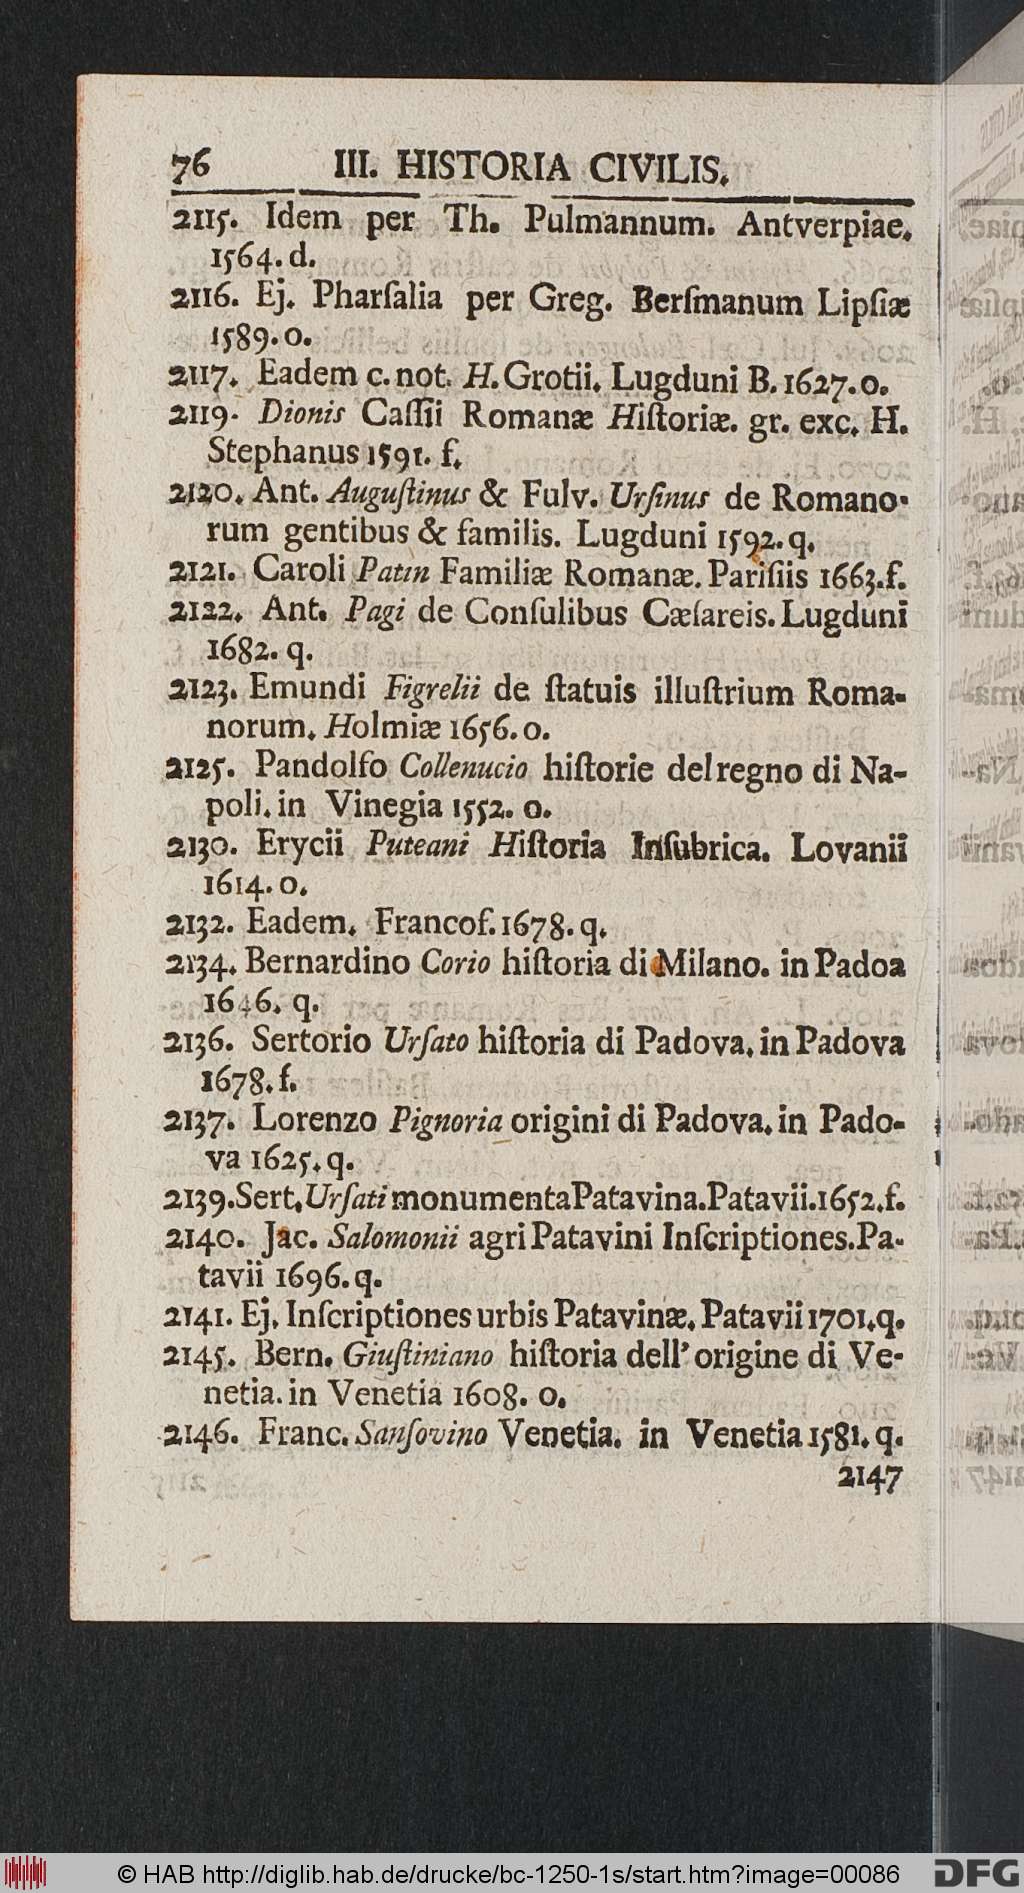 76 III. HISTORIA CIVILIS.
2115. Idem per Th. Pulmannum. Antverpiae.
1564. d.
2116. Ej. Pharſalia per Greg. Berſmanum Lipſiæ
1589. o.
2117. Eadem c. not. H. Grotii. Lugduni B. 1627. o.
2119. Dionis Caſſii Romanæ Hiſtoriæ. gr. exc. H.
Stephanus 1591. f.
2120. Ant. Auguſtinus & Fulv. Urſinus de Romano-
rum gentibus & familis. Lugduni 1592. q.
2121. Caroli Patin Familiæ Romanæ. Pariſiis 1663. f.
2122. Ant. Pagi de Conſulibus Cæſareis. Lugduni
1682. q.
2123. Emundi Figrelii de ſtatuis illuſtrium Roma-
norum. Holmiæ 1656. o.
2125. Pandolfo Collenucio hiſtorie del regno di Na-
poli. in Vinegia 1552. o.
2130. Erycii Puteani Hiſtoria Inſubrica. Lovanii
1614. o.
2132. Eadem. Francof. 1678. q.
2134. Bernardino Corio hiſtoria di Milano. in Padoa
1646. q.
2136. Sertorio Urſato hiſtoria di Padova. in Padova
1678. f.
2137. Lorenzo Pignoria origini di Padova. in Pado-
va 1625. q.
2139. Sert. Urſati monumenta Patavina. Patavii. 1652. f.
2140. Jac. Salomonii agri Patavini Inſcriptiones. Pa-
tavii 1696. q.
2141. Ej. Inſcriptiones urbis Patavinæ. Patavii 1701. q.
2145. Bern. Giuſtiniano hiſtoria dell' origine di Ve-
netia. in Venetia 1608. o.
2146. Franc. Sanſovino Venetia. in Venetia 1581. q.
2147
© HAB http://diglib.hab.de/drucke/bc-1250-1s/start.htm?image=00086 DFG